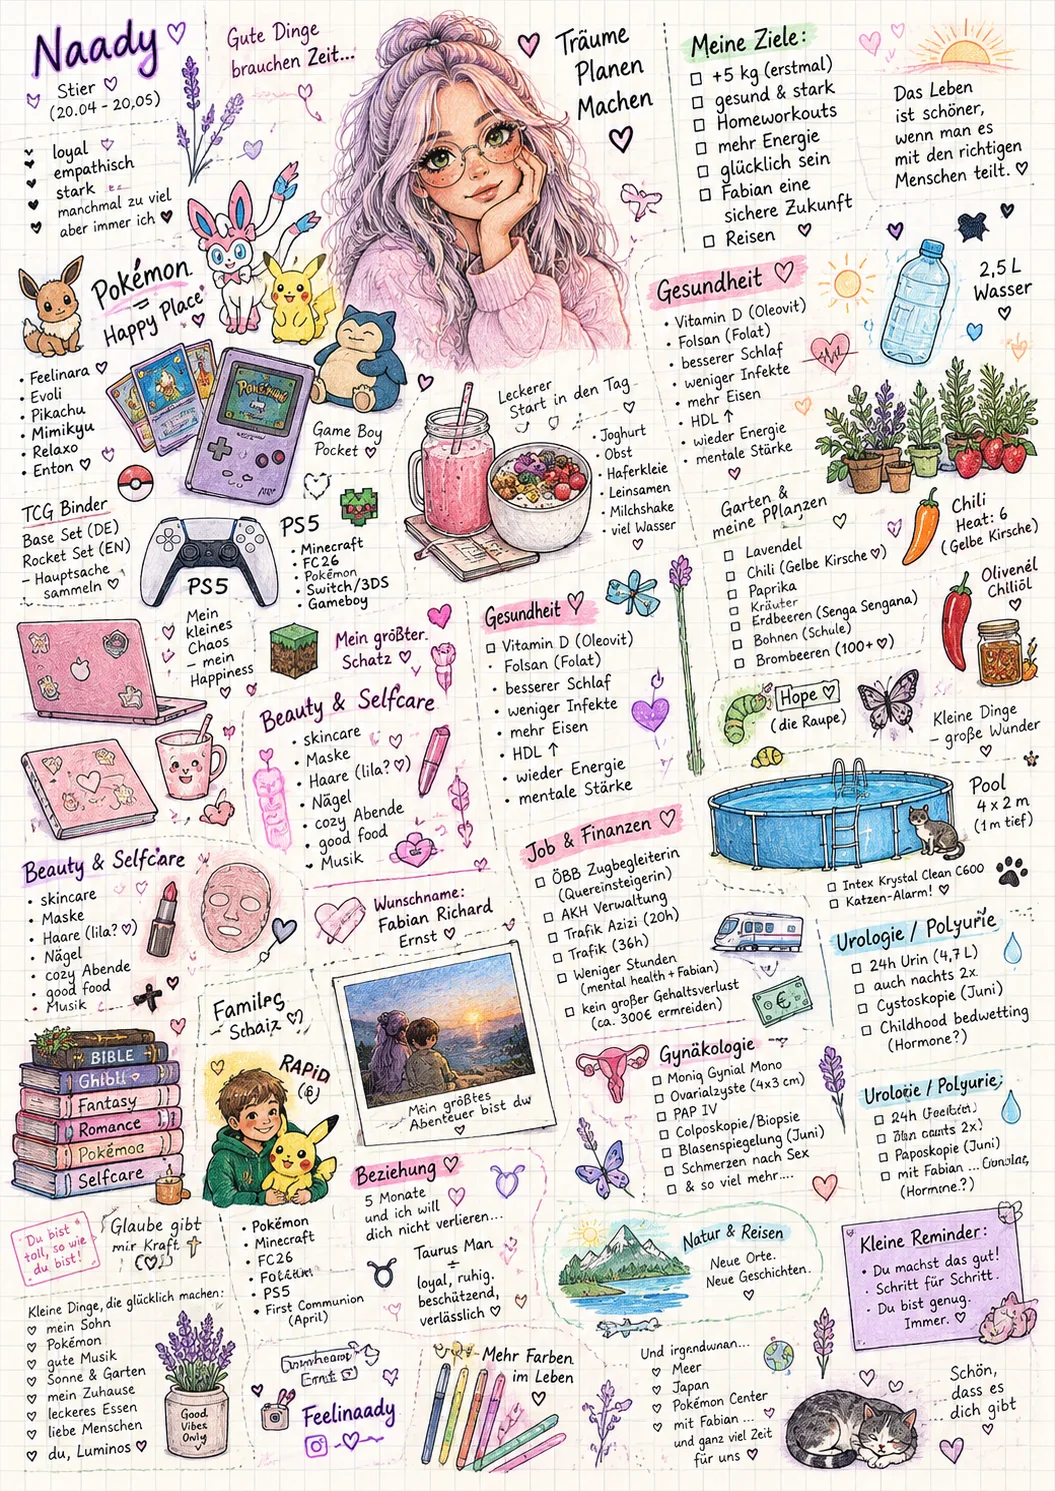 Naady
Stier
(20.04 - 20,05)
loyal
empathisch
stark
manchmal zu viel
aber immer ich
Gute Dinge
brauchen Zeit...
Träume
Planen
Machen
Meine Ziele:
+5 kg (erstmal)
gesund & stark
Homeworkouts
mehr Energie
glücklich sein
Fabian eine
sichere Zukunft
Reisen
Das Leben
ist schöner,
wenn man es
mit den richtigen
Menschen teilt.
Pokémon
Happy Place
Feelinara
Evoli
Pikachu
Mimikyu
Relaxo
Enton
Game Boy
Pocket
TCG Binder
Base Set (DE)
Rocket Set (EN)
– Hauptsache
sammeln
PS5
PS5
Minecraft
FC26
Pokémon
Switch/3DS
Gameboy
Leckerer
Start in den Tag
Joghurt
Obst
Haferkleie
Leinsamen
Milchshake
viel Wasser
Gesundheit
Vitamin D (Oleovit)
Folsan (Folat)
besserer Schlaf
weniger Infekte
mehr Eisen
HDL ↑
wieder Energie
mentale Stärke
2,5 L
Wasser
Garten &
meine PPlanzen
Lavendel
Chili (Gelbe Kirsche ♡)
Paprika
Kräuter
Erdbeeren (Senga Sengana)
Bohnen (Schule)
Brombeeren (100+ ♡)
Chili
Heat: 6
(Gelbe Kirsche)
Olivenél
Chiliöl
Mein
kleines
Chaos
– mein
Happiness
Mein größter
Schatz
Gesundheit
Vitamin D (Oleovit)
Folsan (Folat)
besserer Schlaf
weniger Infekte
mehr Eisen
HDL ↑
wieder Energie
mentale Stärke
Hope
(die Raupe)
Kleine Dinge
– große Wunder
Beauty & Selfcare
skincare
Maske
Haare (lila? ♡)
Nägel
cozy Abende
good food
Musik
Pool
4 x 2 m
(1m tief)
Intex Krystal Clean C600
Katzen-Alarm!
Beauty & Selfcare
skincare
Maske
Haare (lila? ♡)
Nägel
cozy Abende
good food
Musik
Wunschname:
Fabian Richard
Ernst
Job & Finanzen
ÖBB Zugbegleiterin
(Quereinsteigerin)
AKH Verwaltung
Trafik Azizi (20h)
Trafik (36h)
Weniger Stunden
(mental health + Fabian)
kein großer Gehaltsverlust
(ca. 300€ ermreiden)
€
Urologie / Polyurie
24h Urin (4,7 L)
auch nachts 2x
Cystoskopie (Juni)
Childhood bedwetting
(Hormone?)
BIBLE
Ghibli
Fantasy
Romance
Pokémoc
Selfcare
RAPiD
Mein größtes
Abenteuer bist dw
Gynäkologie
Moniq Gynial Mono
Ovarialzyste (4x3 cm)
PAP IV
Colposkopie/Biopsie
Blasenspiegelung (Juni)
Schmerzen nach Sex
& so viel mehr....
Urologie / Polyurie;
24h
Paposkopie (Juni)
mit Fabian ...
(Hormone.?)
Du bist
toll, so wie
du bist!
Glaube gibt
mir Kraft
Pokémon
Minecraft
FC26
PS5
First Communion
(April)
Beziehung
5 Monate
und ich will
dich nicht verlieren...
Taurus Man
loyal, ruhig.
beschützend,
verlässlich
Natur & Reisen
Neue Orte.
Neue Geschichten.
Kleine Reminder:
Du machst das gut!
Schritt für Schritt.
Du bist genug.
Immer.
Kleine Dinge, die glücklich machen:
mein Sohn
Pokémon
gute Musik
Sonne & Garten
mein Zuhause
leckeres Essen
liebe Menschen
du, Luminos
Good
Vibes
Only
Feelinaady
Mehr Farben
im Leben
Und irgendwnan...
Meer
Japan
Pokémon Center
mit Fabian ...
und ganz viel Zeit
für uns
Schön,
dass es
dich gibt